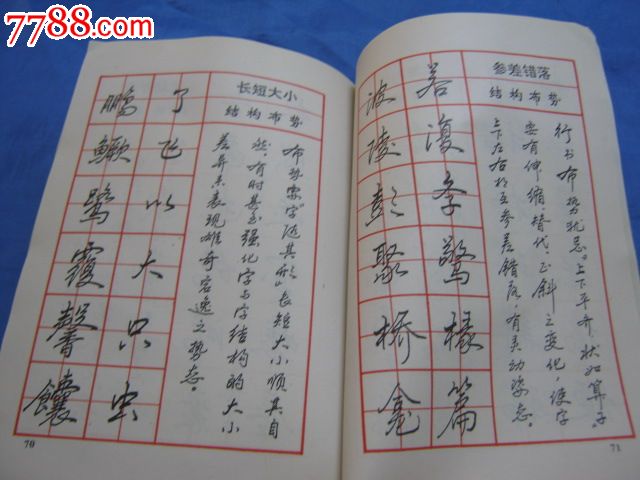 7788.com
长短大小
结构布势
布势家字“随其形”长短大小顺其自
然。有时甚至强化字与字结构的大小
差异来表现雄奇宕逸之势态。
了飞以大只虫
鹏鳜鹭霞馨馕
70
参差错落
结构布势
行书布势犹忌“上下平齐，状如算子”。
要有伸缩替代、正斜之变化，使字
上下左右相互参差错落，有灵动姿态。
若復冬驚橡篇
波陵彭聚桥龛
71